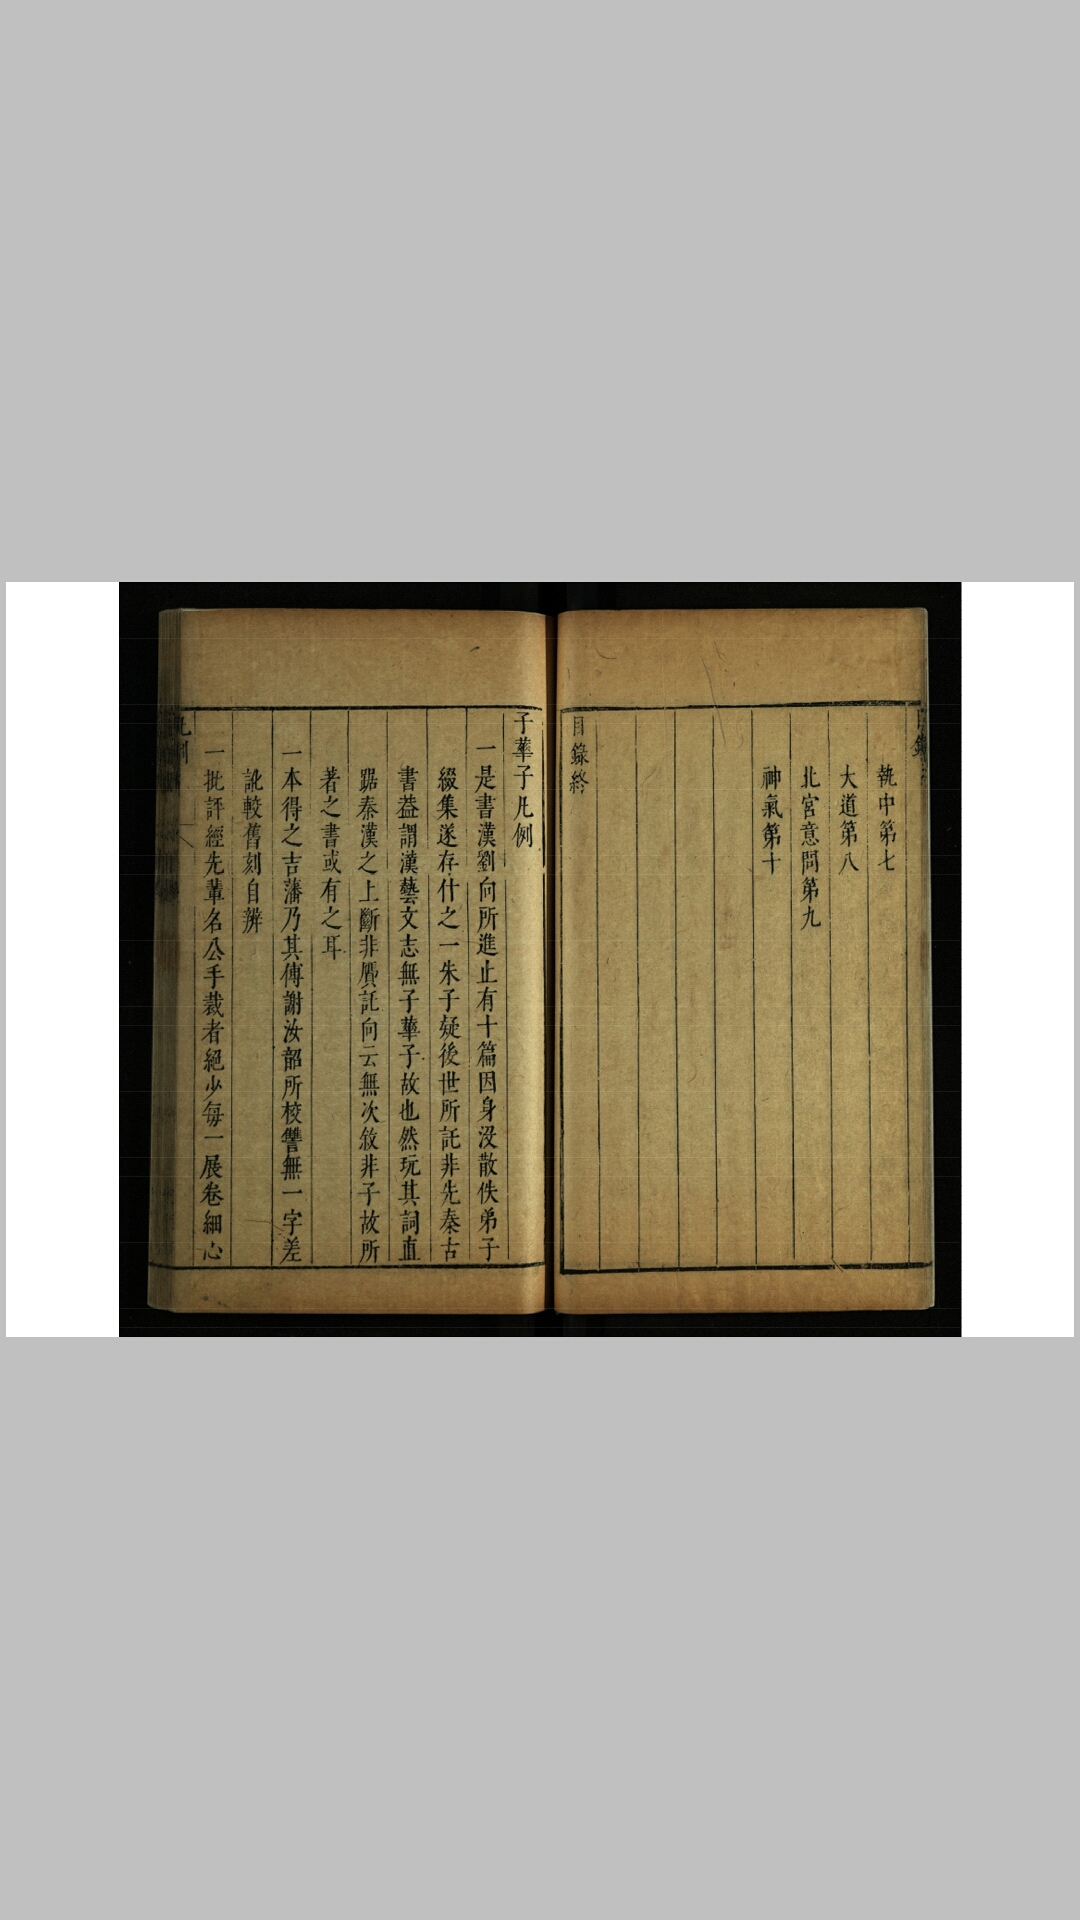 執中第七
大道第八
北宮意問第九
神氣第十
目錄終
子華子凡例
一是書漢劉向所進止有十篇因身沒散佚弟子
綴集遂存什之一朱子疑後世所託非先秦古
書葢謂漢藝文志無子華子故也然玩其詞直
踞秦漢之上斷非贋託向云無次敘非子故所
著之書或有之耳
一本得之吉藩乃其傳謝汝韶所校讐無一字差
訛較舊刻自辨
一批評經先輩名公手裁者絕少每一展卷細心
凡例